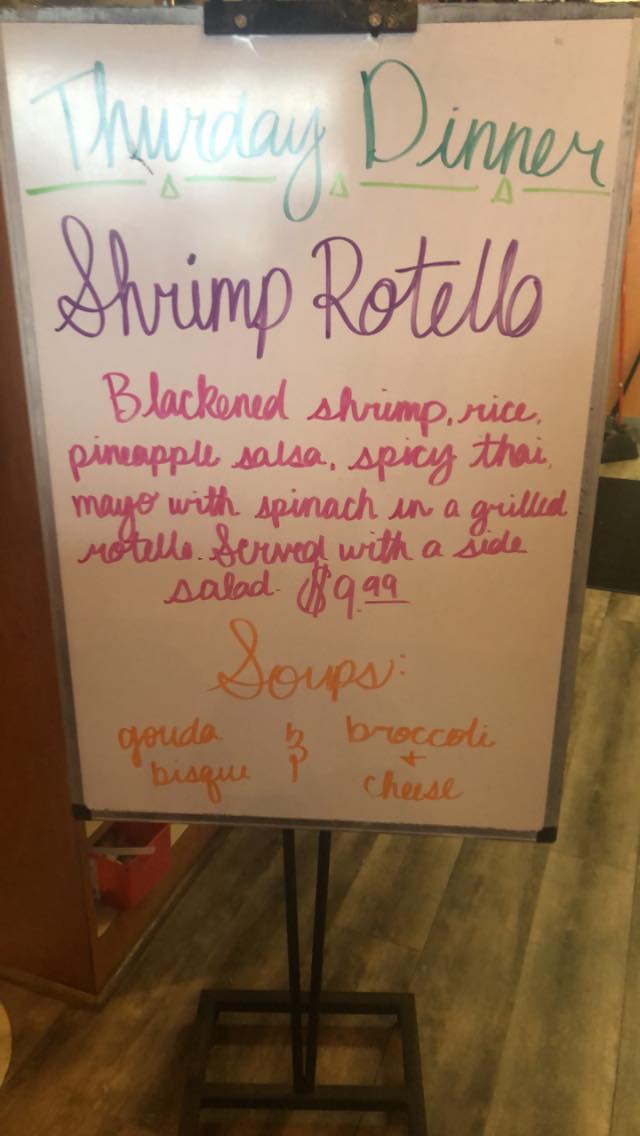 Thurday Dinner
Shrimp Rotello
Blackened shrimp, rice,
pineapple salsa, spicy thai,
mayo with spinach in a grilled
rotello. Served with a side
salad. $9.99
Soups:
gouda broccoli
bisque + cheese